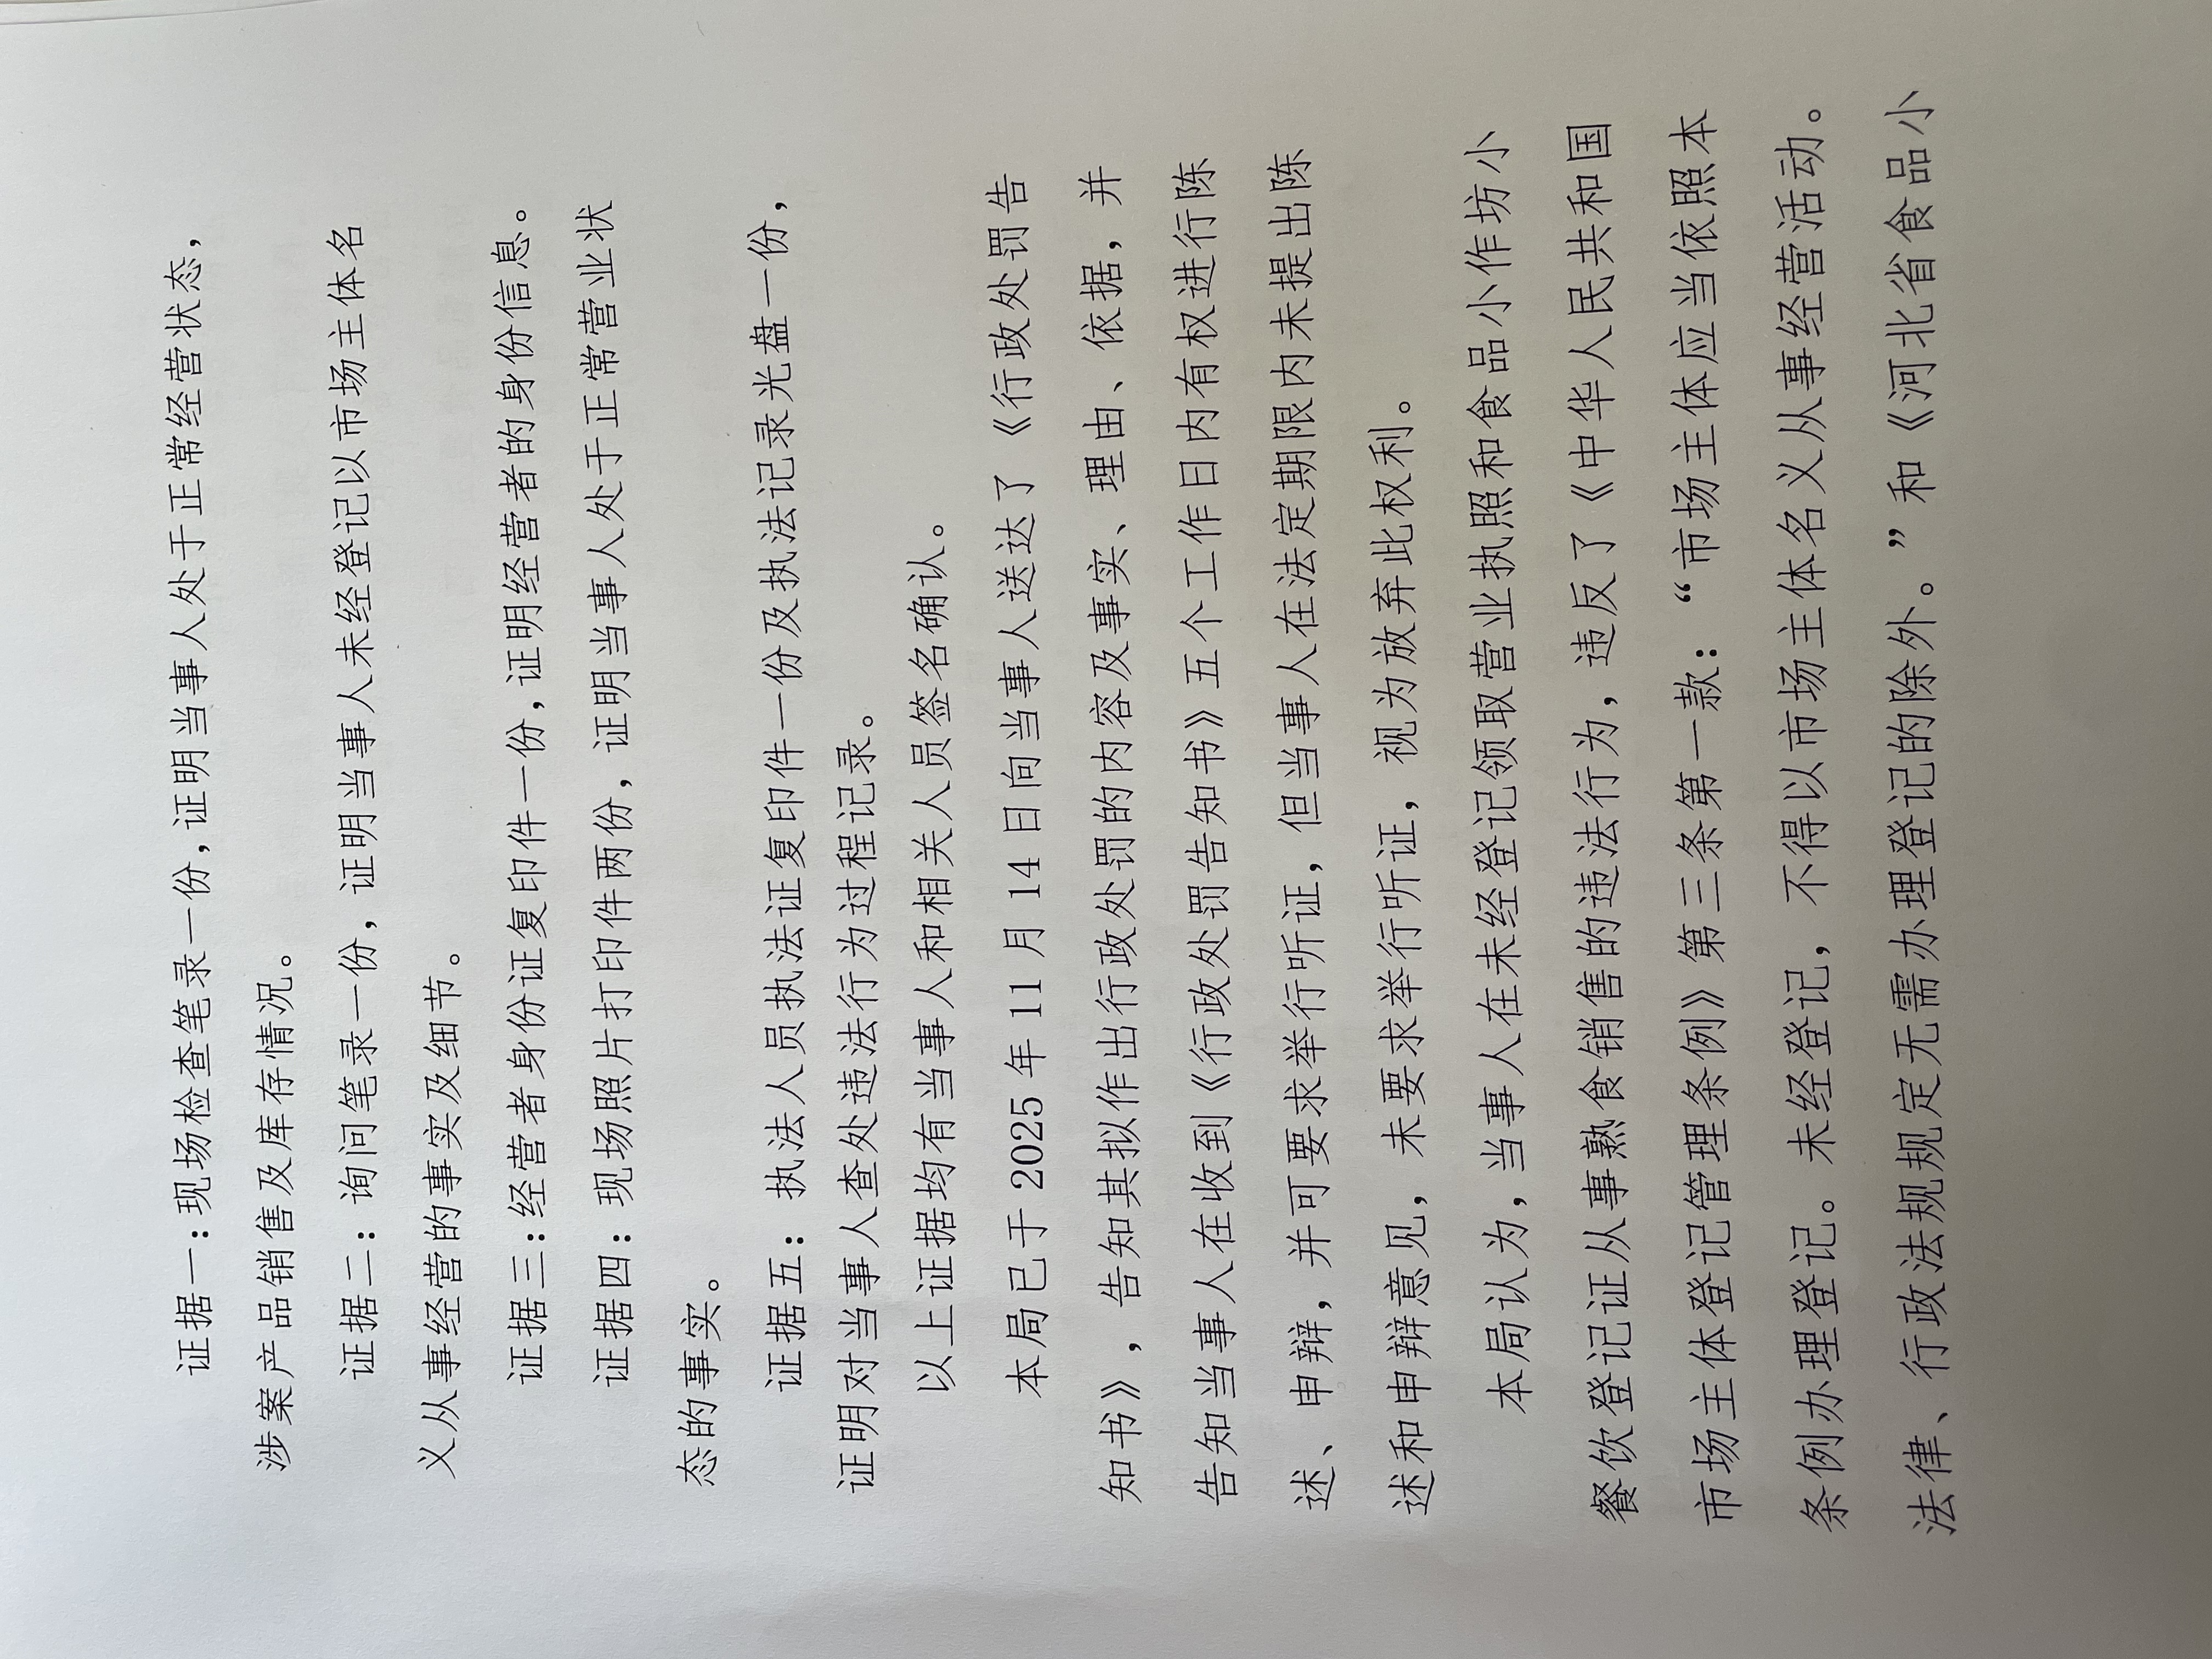 证据一：现场检查笔录一份，证明当事人处于正常经营状态，
涉案产品销售及库存情况。
证据二：询问笔录一份，证明当事人未经登记以市场主体名
义从事经营的事实及细节。
证据三：经营者身份证复印件一份，证明经营者的身份信息。
证据四：现场照片打印件两份，证明当事人处于正常营业状
态的事实。
证据五：执法人员执法证复印件一份及执法记录光盘一份，
证明对当事人查处违法行为过程记录。
以上证据均有当事人和相关人员签名确认。
本局已于 2025 年 11 月 14 日向当事人送达了《行政处罚告
知书》，告知其拟作出行政处罚的内容及事实、理由、依据，并
告知当事人在收到《行政处罚告知书》五个工作日内有权进行陈
述、申辩，并可要求举行听证，但当事人在法定期限内未提出陈
述和申辩意见，未要求举行听证，视为放弃此权利。
本局认为，当事人在未经登记领取营业执照和食品小作坊小
餐饮登记证从事熟食销售的违法行为，违反了《中华人民共和国
市场主体登记管理条例》第三条第一款：“市场主体应当依照本
条例办理登记。未经登记，不得以市场主体名义从事经营活动。
法律、行政法规规定无需办理登记的除外。”和《河北省食品小